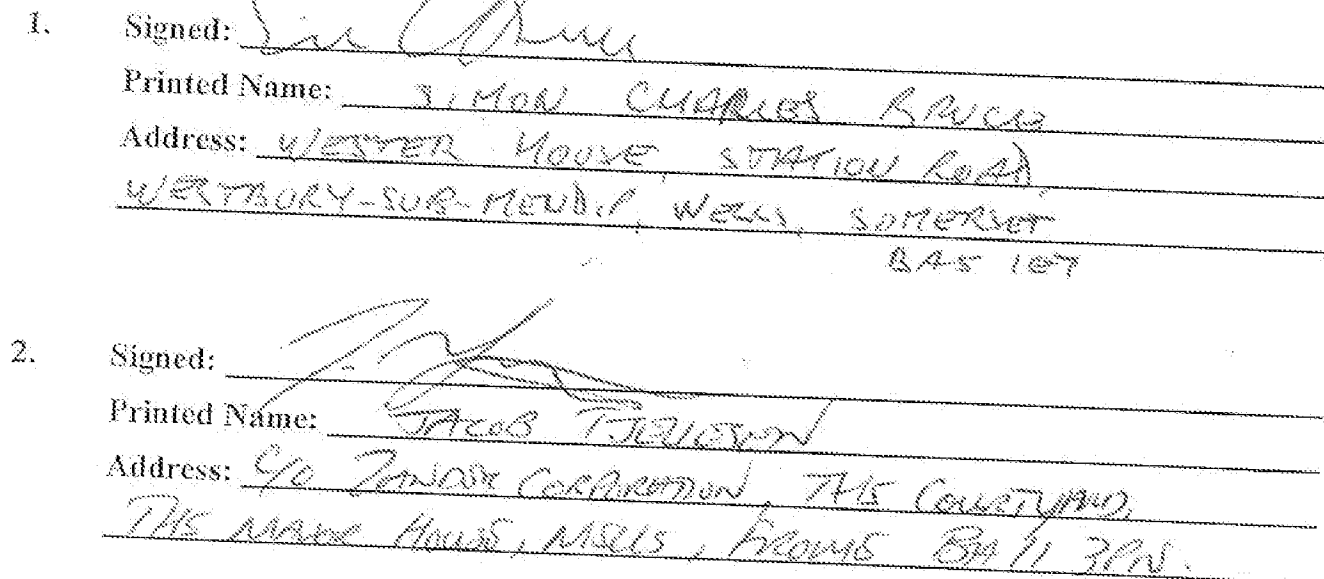 1. Signed:
Printed Name: SIMON CHARLES BRUCE
Address: WESTER HOUSE, STATION ROAD,
WESTBURY-SUB-MENDIP, WELLS, SOMERSET
BA5 1ET
2. Signed:
Printed Name: JACOB
Address: C/O CORPORATION, THE COURTYARD,
THE MANOR HOUSE, MELLS, FROME BA11 3PN.